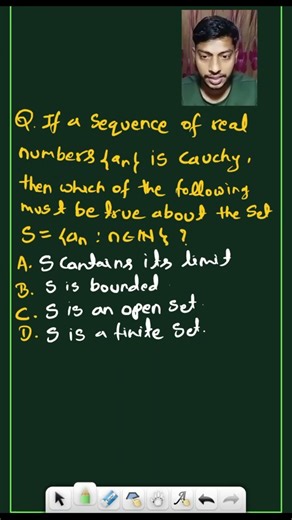 Q. If a sequence of real
numbers {an} is Cauchy,
then which of the following
must be true about the set
S = {an : n∈ℕ} ?
A. S contains its limit
B. S is bounded
C. S is an open set.
D. S is a finite set.